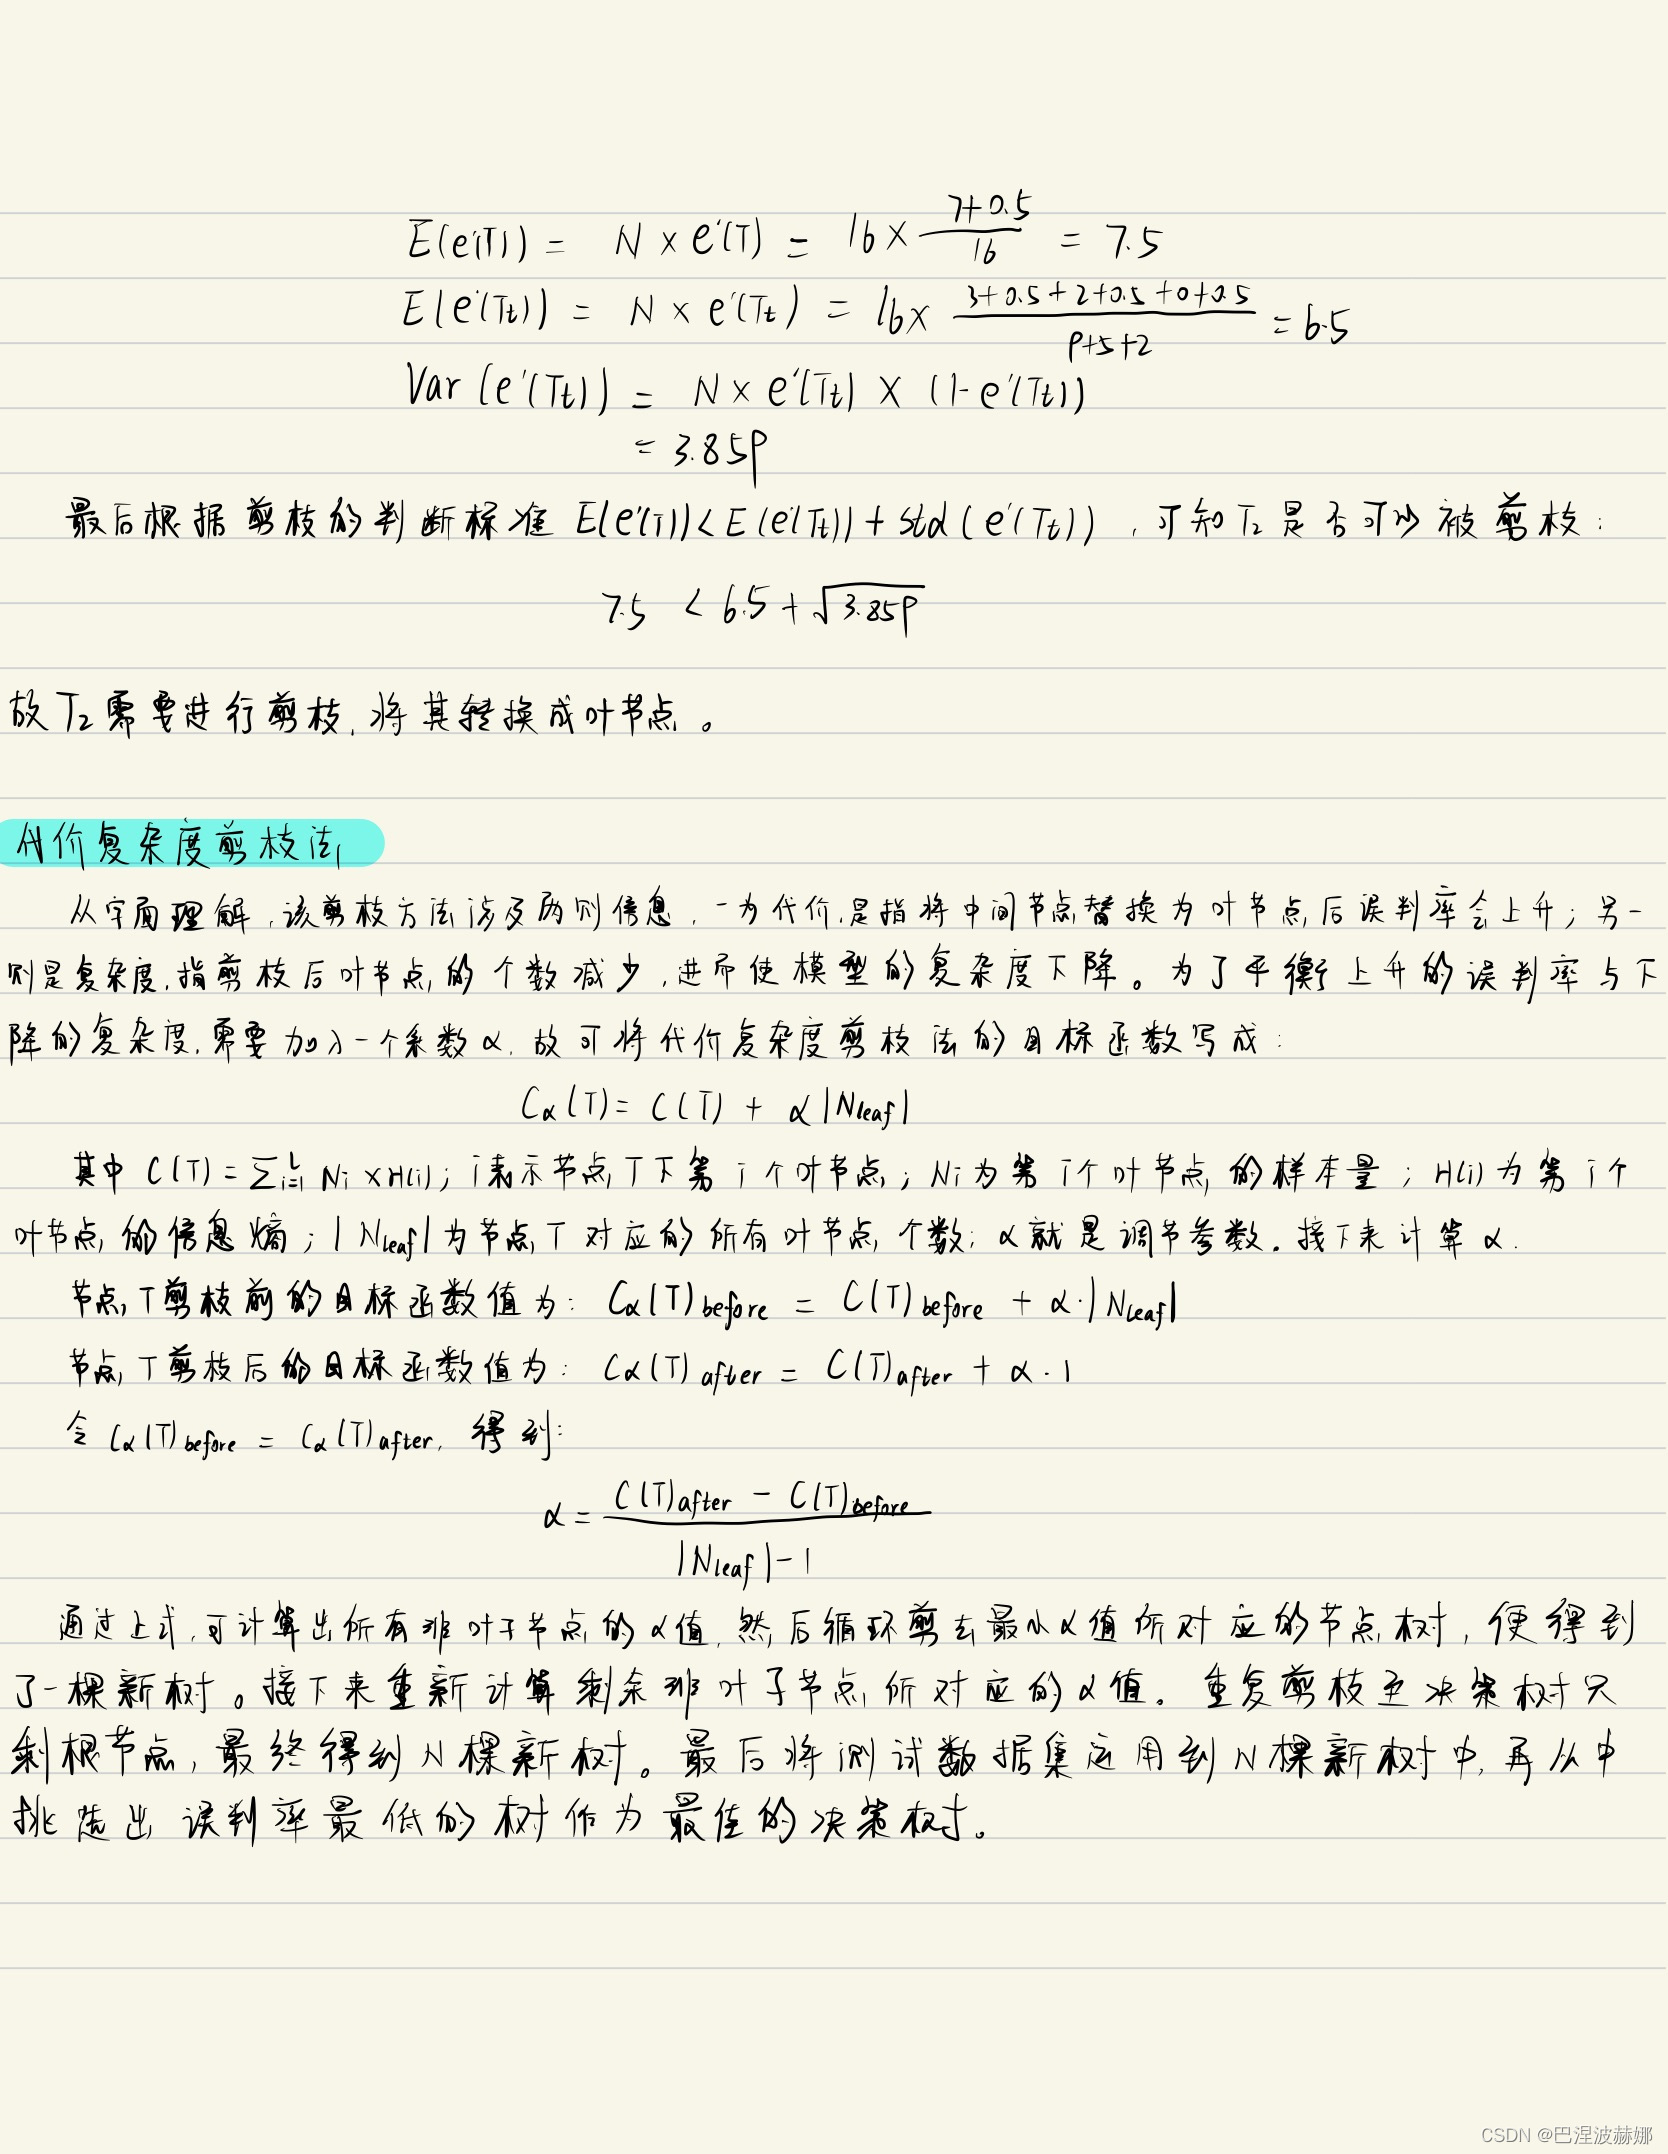 E(e'(T)) = N × e'(T) = 16 × (7+0.5)/16 = 7.5
E(e'(Tt)) = N × e'(Tt) = 16 × (3+0.5+2+0.5+0+0.5)/(9+5+2) = 6.5
Var(e'(Tt)) = N × e'(Tt) × (1-e'(Tt))
= 3.859
最后根据剪枝的判断标准 E(e'(T)) < E(e'(Tt)) + std(e'(Tt)),可知T₂是否可以被剪枝:
7.5 < 6.5 + √3.859
故T₂需要进行剪枝,将其转换成叶节点。
代价复杂度剪枝法
从字面理解,该剪枝方法涉及两则信息,一为代价,是指将中间节点替换为叶节点后误判率会上升;另一
则是复杂度,指剪枝后叶节点的个数减少,进而使模型的复杂度下降。为了平衡上升的误判率与下
降的复杂度,需要加入一个系数α,故可将代价复杂度剪枝法的目标函数写成:
Cα(T) = C(T) + α|Nleaf|
其中 C(T) = ∑ᵢ₌₁ᴸ Ni × H(i);i表示节点T下第i个叶节点;Ni为第i个叶节点的样本量;H(i)为第i个
叶节点的信息熵;|Nleaf|为节点T对应的所有叶节点个数;α就是调节参数。接下来计算α.
节点T剪枝前的目标函数值为:Cα(T)before = C(T)before + α·|Nleaf|
节点T剪枝后的目标函数值为:Cα(T)after = C(T)after + α·1
令 Cα(T)before = Cα(T)after,得到:
α = (C(T)after - C(T)before)/(|Nleaf|-1)
通过上式,可计算出所有非叶子节点的α值,然后循环剪去最小α值所对应的节点树,便得到
了一棵新树。接下来重新计算剩余非叶子节点所对应的α值。重复剪枝至决策树只
剩根节点,最终得到N棵新树。最后将测试数据集运用到N棵新树中,再从中
挑选出误判率最低的树作为最佳的决策树。
CSDN @巴涅波赫娜